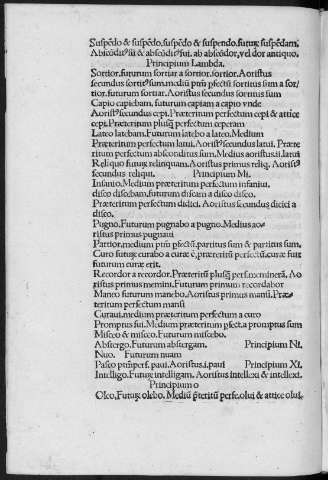 Suspẽdo & suspẽdo, suspẽdo & suspendo. futuꝝ suspẽdam.
Abscõditꝰ sũ & abscõditꝰ fui. ab abscõdor, vel dor antiquo.
Principium Lambda.
Sortior. futurum sortiar a sortior, sortior. Aoristus
secundus sortitꝰ sum. mediũ ptm̃ pfectũ sortitus sum a sor/
tior. futurum sortiar. Aoristus secundus sortitus sum
Capio capiebam, futurum capiam a capio vnde
Aoristꝰ secundus cepi. Præteritum perfectum cepi & attice
cepi. Præteritum plusq̃ perfectum ceperam
Lateo latebam. Futurum latebo a lateo. Medium
Præteritum perfectum latui. Aoristꝰ secundus latui. Præte
ritum perfectum absconditus sum. Medius aoristus. ii. latui
Reliquo futuꝝ relinquam. Aoristus primus reliq. Aoristꝰ
secundus reliqui. Principium Mi.
Insanio. Medium præteritum perfectum insaniui.
disco discebam. futurum discam a disco disco.
Præteritum perfectum didici. Aoristus secundus didici a
disco.
Pugno. Futurum pugnabo a pugno. Medius ao/
ristus primus pugnaui
Partior. medium ptm̃ pfectũ. partitus sum & partitus sum.
Curo futuꝝ curabo a curæ ẽ, præteritũ perfectũ. curæ fuit
futurum curæ erit.
Recordor a recordor. Præteritũ plusq̃ perf. meminerã. Ao
ristus primus memini. Futurum primum recordabor
Maneo futurum manebo. Aoristus primus mansi. Præ/
teritum perfectum mansi
Curaui. medium præteritum perfectum a curo
Promptus fui. Medium præteritum pfect. a promptus sum
Misceo & misceo. Futurum miscebo.
Abstergo. Futurum abstergam. Principium Ni.
Nuo. Futurum nuam
Pasco ptm̃ perf. paui. Aoristus. i. paui Principium Xi.
Intelligo. Futuꝝ intelligam. Aoristus intellexi & intellexi.
Principium o
Oleo. Futuꝝ olebo. Mediũ p̃teritũ perfe. olui & attice olui.